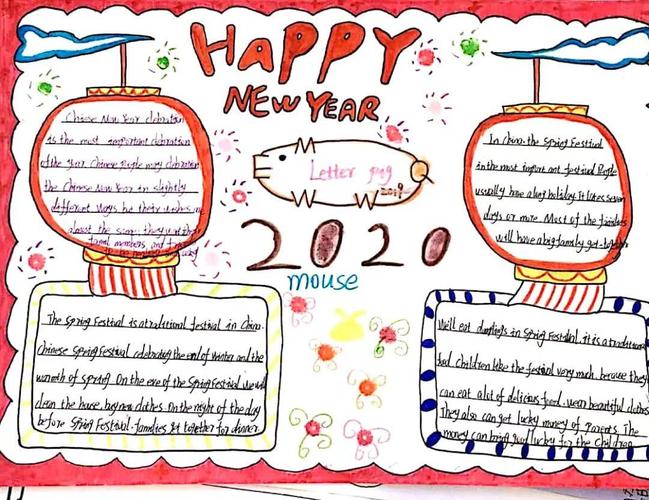 HAPPY
NEW YEAR
Chinese New Year clebration
is the most important clebration
of the year. Chinese People may clebration
the Chinese New Year in slightly
different ways but their wishes are
almost the same; they want their
family members and
to be healthy and lucky
Letter
2019
2020
mouse
In China, the Spring Festival
is the most important festival People
usually have a long holiday. It lates seven
days or more. Most of the families
will have a big family get-together
The Spring Festival is a traditional festival in China.
Chinese Spring Festival celebrating the end of winter and the
warmth of spring. On the eve of the Spring Festival we will
clean the house, buy new clothes. On the night of the day
before Spring Festival. families get together for dinner.
We'll eat dumplings in Spring Festival. it is a traditional
food. Children like the festival very much, because they
can eat a lot of delicious food. wear beautiful clothes
They also can get lucky money of Parents. The
money can bring good lucky for the Children